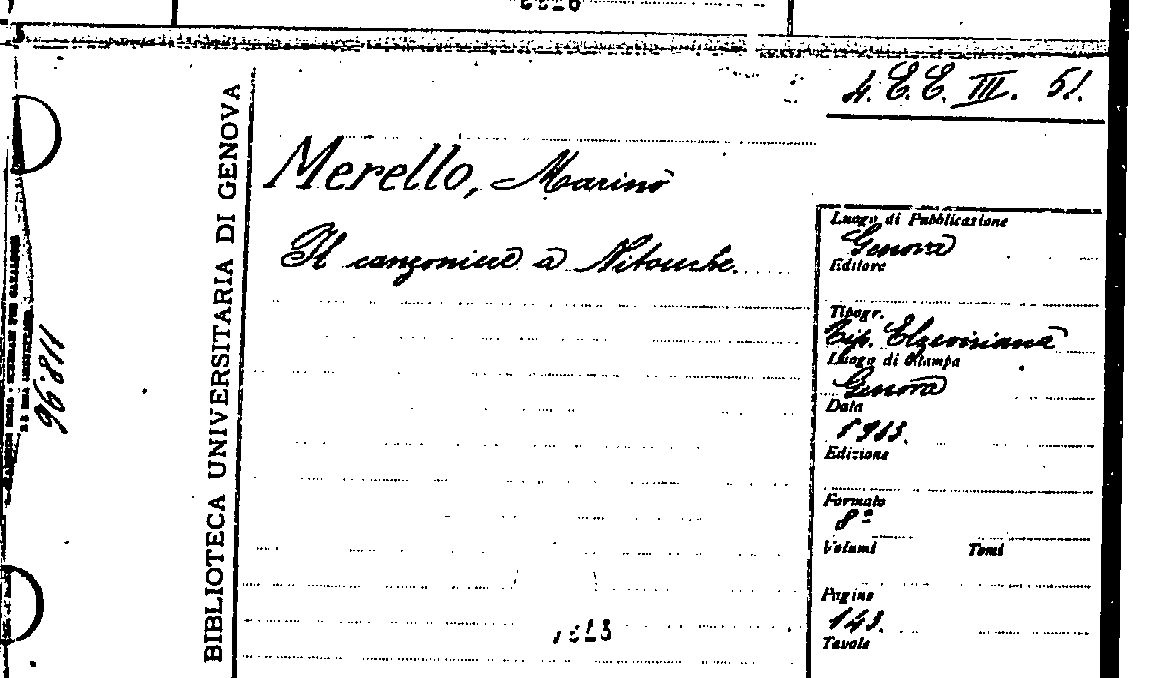 4. E. E. III. 51.
BIBLIOTECA UNIVERSITARIA DI GENOVA
Merello, Marino
Il canzoniere a Nitouche.
Luogo di Pubblicazione
Genova
Editore
Tipogr.
Tip. Elzeviriana
Luogo di Stampa
Genova
Data
1913.
Edizione
Formato
8º
Volumi Tomi
Pagine
143.
Tavole
96.811